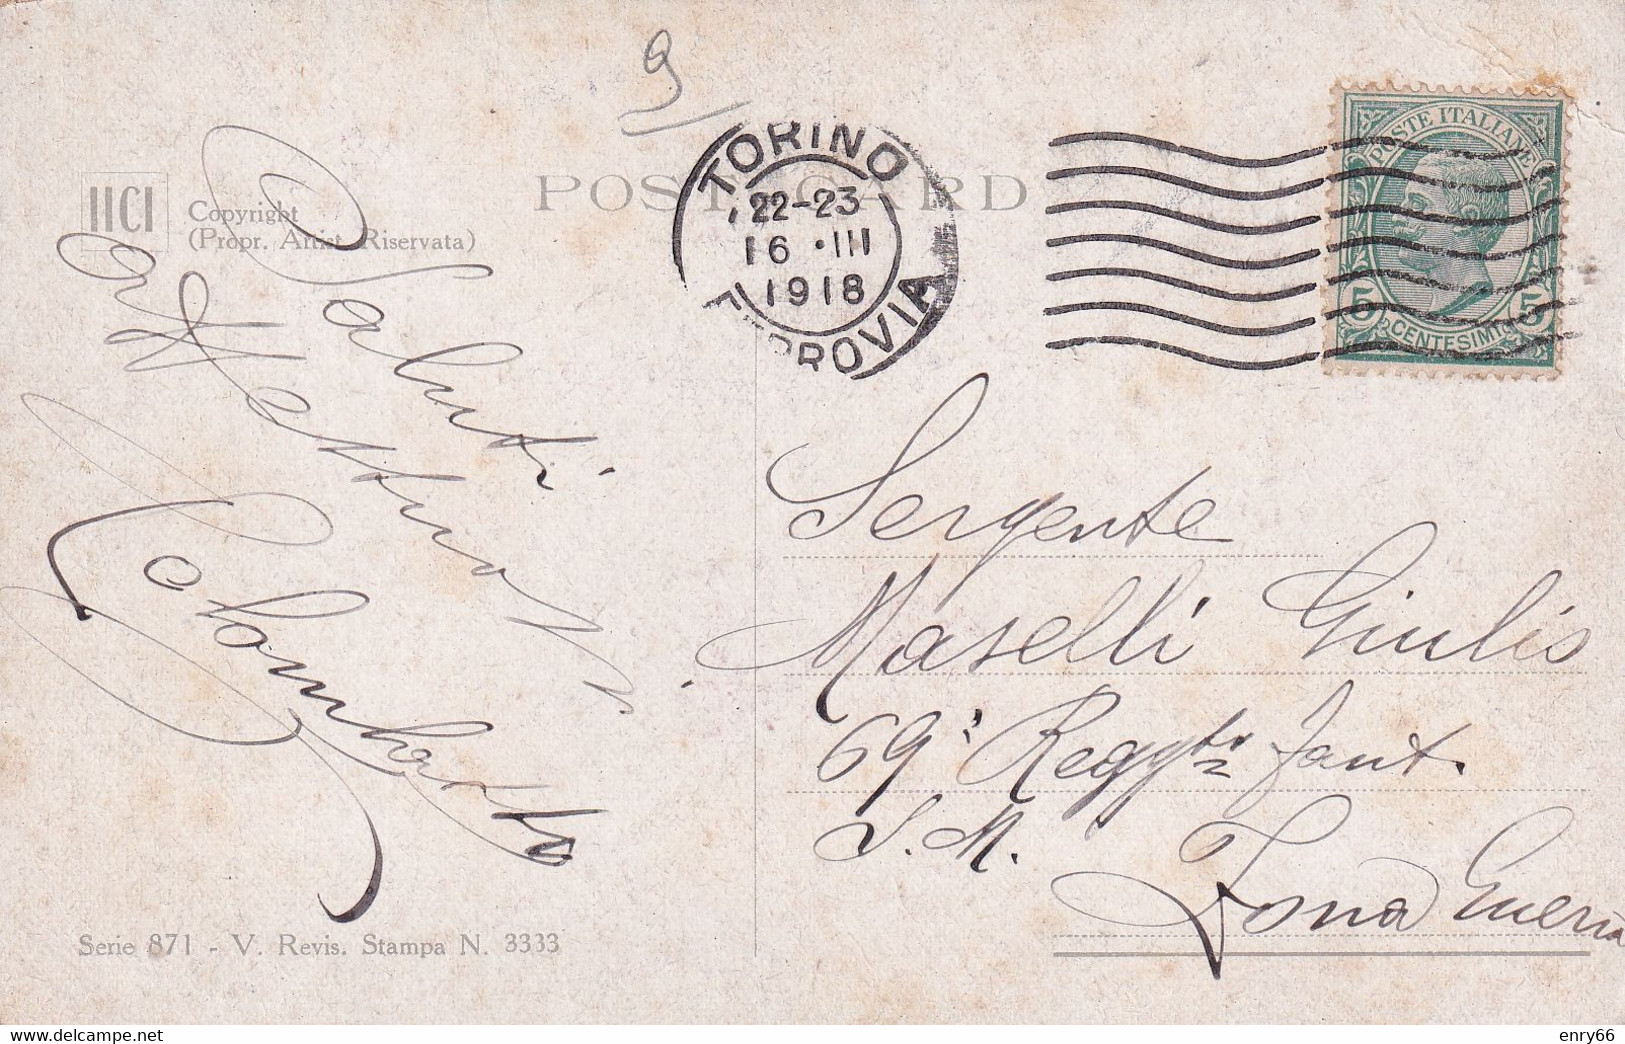 9
POST CARD
IICI
Copyright
(Propr. Artist. Riservata)
TORINO
22-23
16 · III
1918
FERROVIA
POSTE ITALIANE
5 CENTESIMI 5
Saluti
Affettuosi
Colombatto
Sergente
Maselli Giulio
69° Reggto fant.
S. M.
Zona Guerra
Serie 871 - V. Revis. Stampa N. 3333
enry66